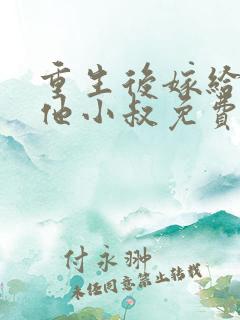 重生後嫁給
他小叔免費
付永翀
未經同意禁止轉載